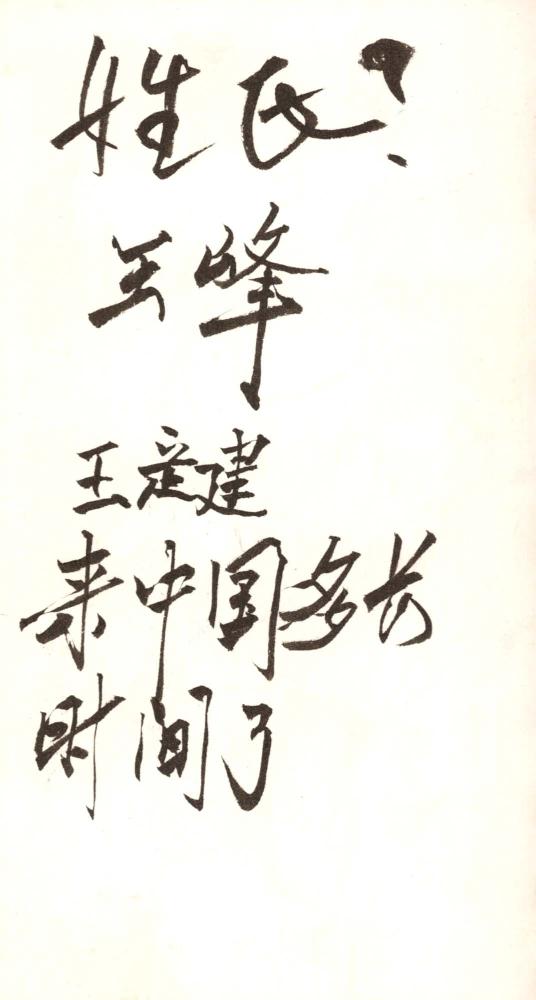 姓氏？
王峰
王爱建
来中国多长
时间了